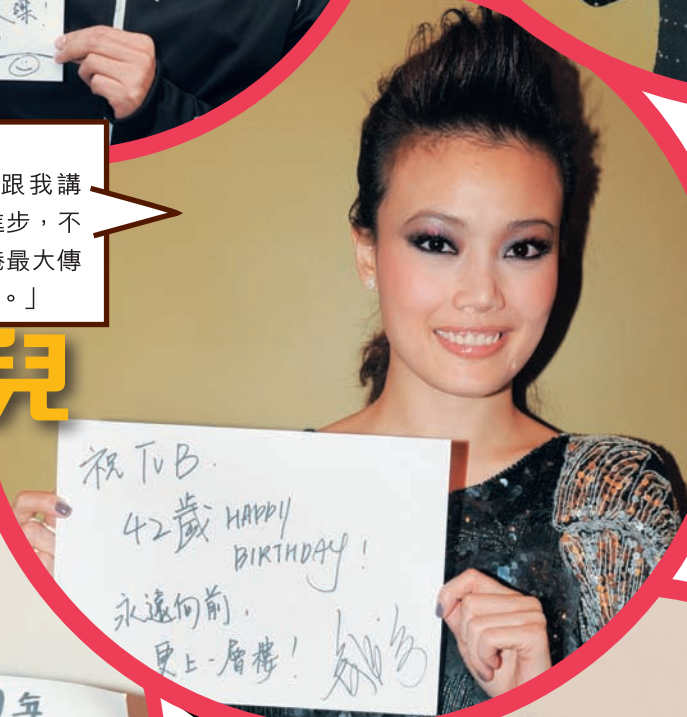 跟我講
進步，不
港最大傳
。」
兒
祝 TVB.
42歲 HAPPY
BIRTHDAY!
永遠向前，
更上一層樓！